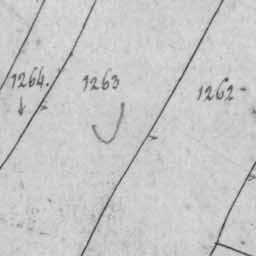 1264.
1263
1262